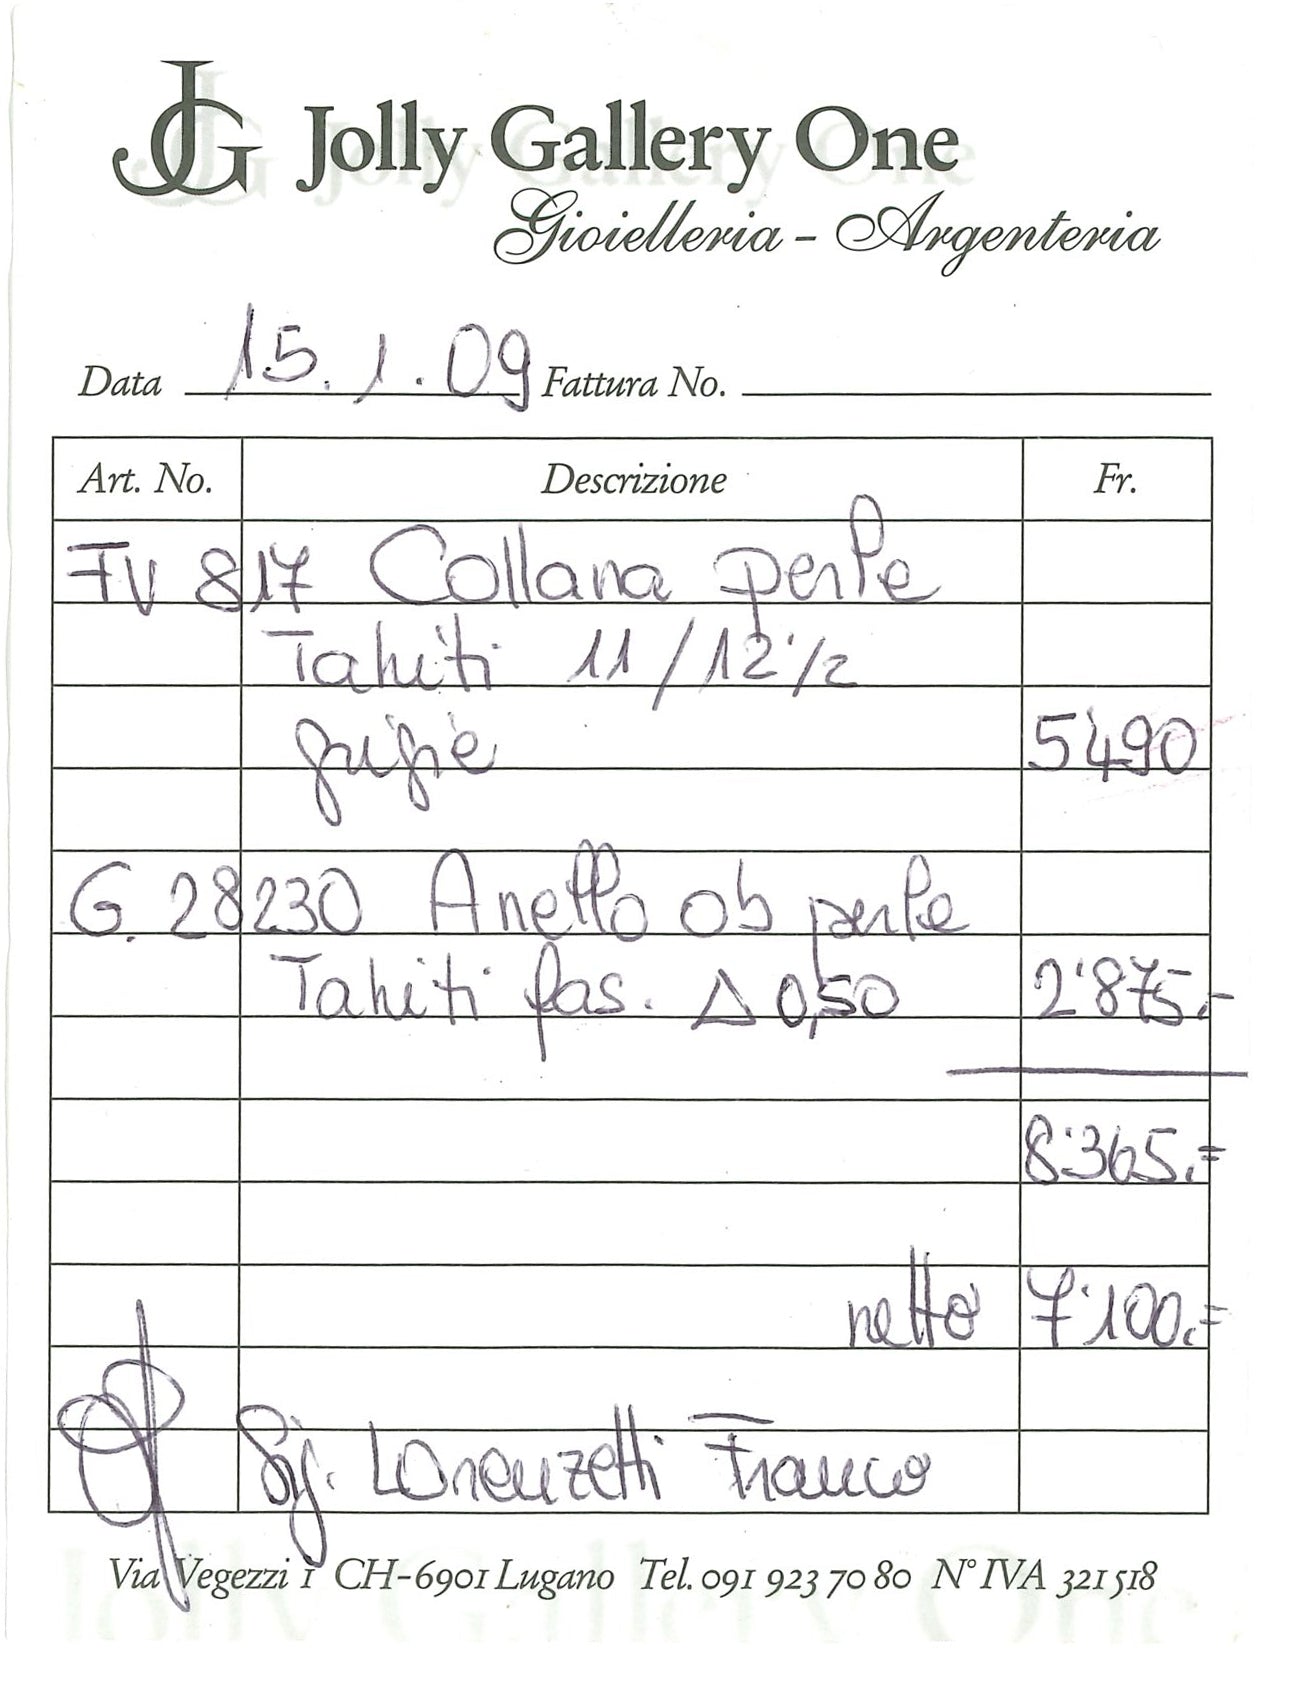 JG Jolly Gallery One
Gioielleria - Argenteria
Data 15.1.09 Fattura No.
Art. No. Descrizione Fr.
FV 817 Collana perle
Tahiti 11/12 1/2
grigie 5490
G. 28230 Anello ob perle
Tahiti fas. Δ 0,50 2'875.-
8'365.=
netto 7'100.=
Sig. Lorenzetti Franco
Via Vegezzi 1 CH-6901 Lugano Tel. 091 923 70 80 N° IVA 321 518